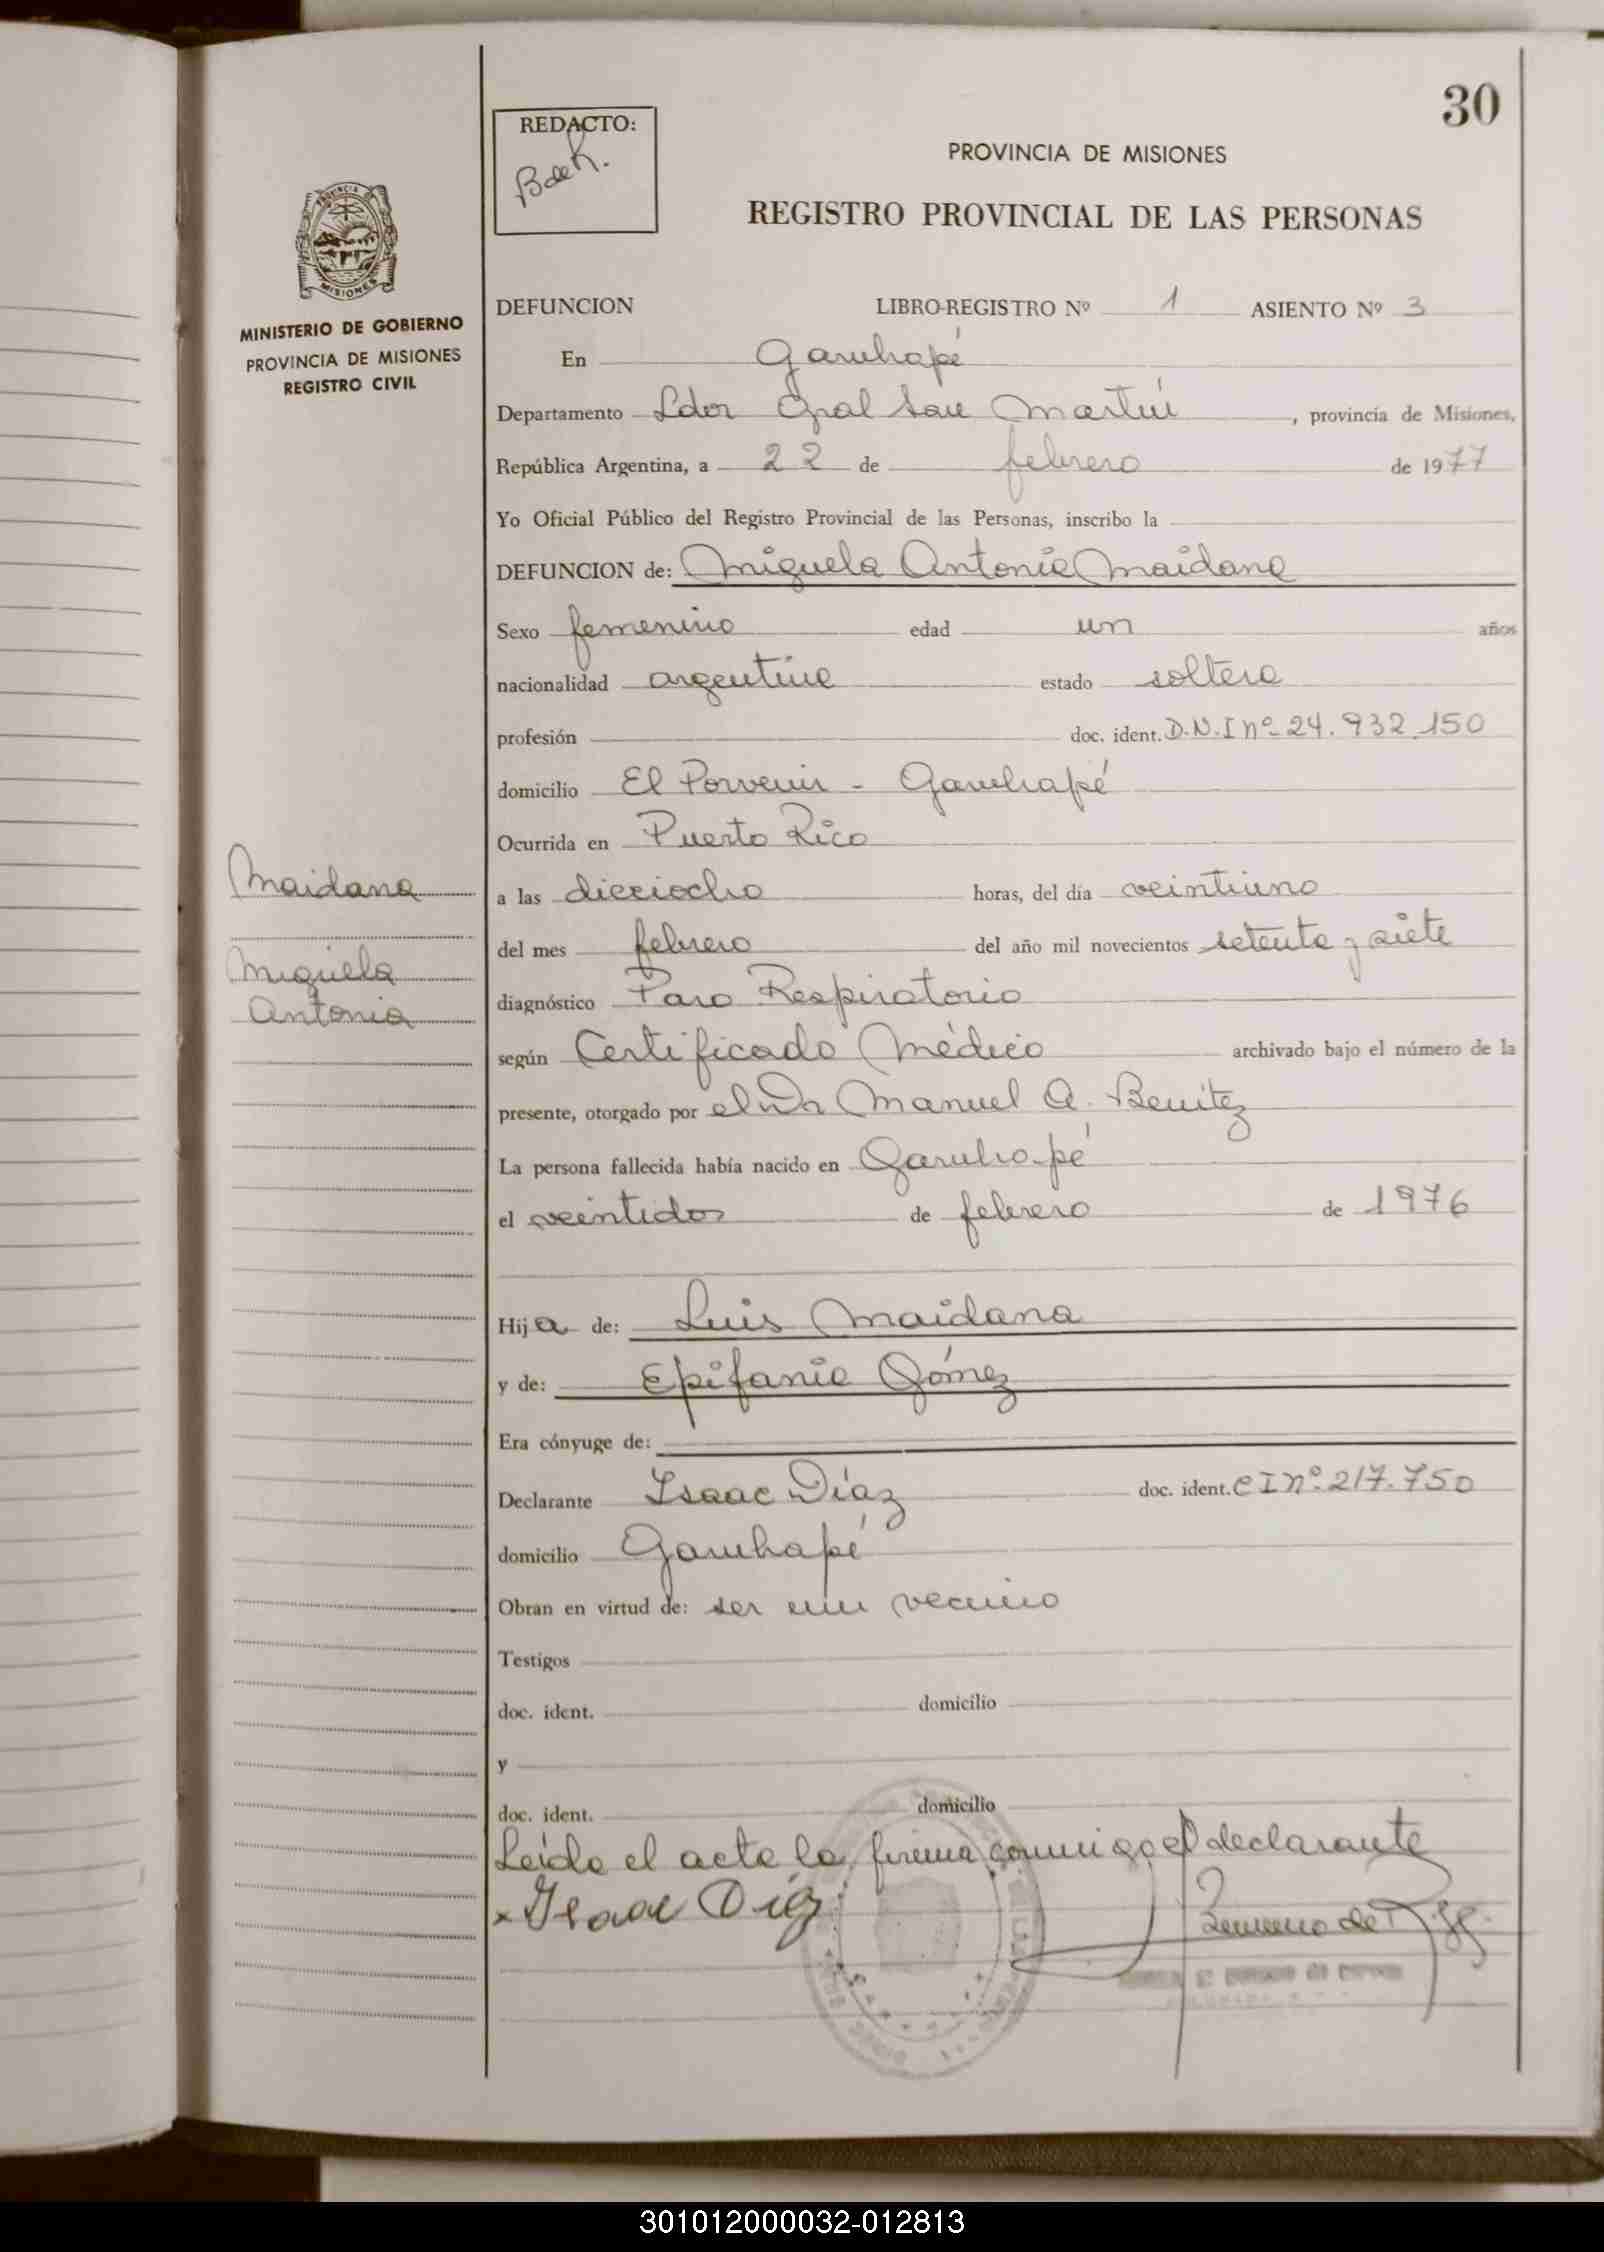 30
REDACTO:
PROVINCIA DE MISIONES
REGISTRO PROVINCIAL DE LAS PERSONAS
PROVINCIA
MISIONES
MINISTERIO DE GOBIERNO
PROVINCIA DE MISIONES
REGISTRO CIVIL
DEFUNCION LIBRO-REGISTRO Nº 1 ASIENTO Nº 3
En Garuhapé
Departamento Ldor Gral San Martín, provincia de Misiones,
República Argentina, a 22 de febrero de 1977
Yo Oficial Público del Registro Provincial de las Personas, inscribo la
DEFUNCION de: Miguela Antonia Maidana
Sexo femenino edad un años
nacionalidad argentina estado soltera
profesión doc. ident. D.N.I nº 24.932.150
domicilio El Porvenir - Garuhapé
Ocurrida en Puerto Rico
Maidana
Miguela
Antonia
a las dieciocho horas, del día veintiuno
del mes febrero del año mil novecientos setenta y siete
diagnóstico Paro Respiratorio
según Certificado Médico archivado bajo el número de la
presente, otorgado por el Dr Manuel A. Benitez
La persona fallecida había nacido en Garuhapé
el veintidos de febrero de 1976
Hija de: Luis Maidana
y de: Epifania Gómez
Era cónyuge de:
Declarante Isaac Díaz doc. ident. C I nº 217.750
domicilio Garuhapé
Obran en virtud de: ser un vecino
Testigos
doc. ident. domicilio
y
doc. ident. domicilio
Leída el acta la firma conmigo el declarante
x Isaac Diaz
301012000032-012813